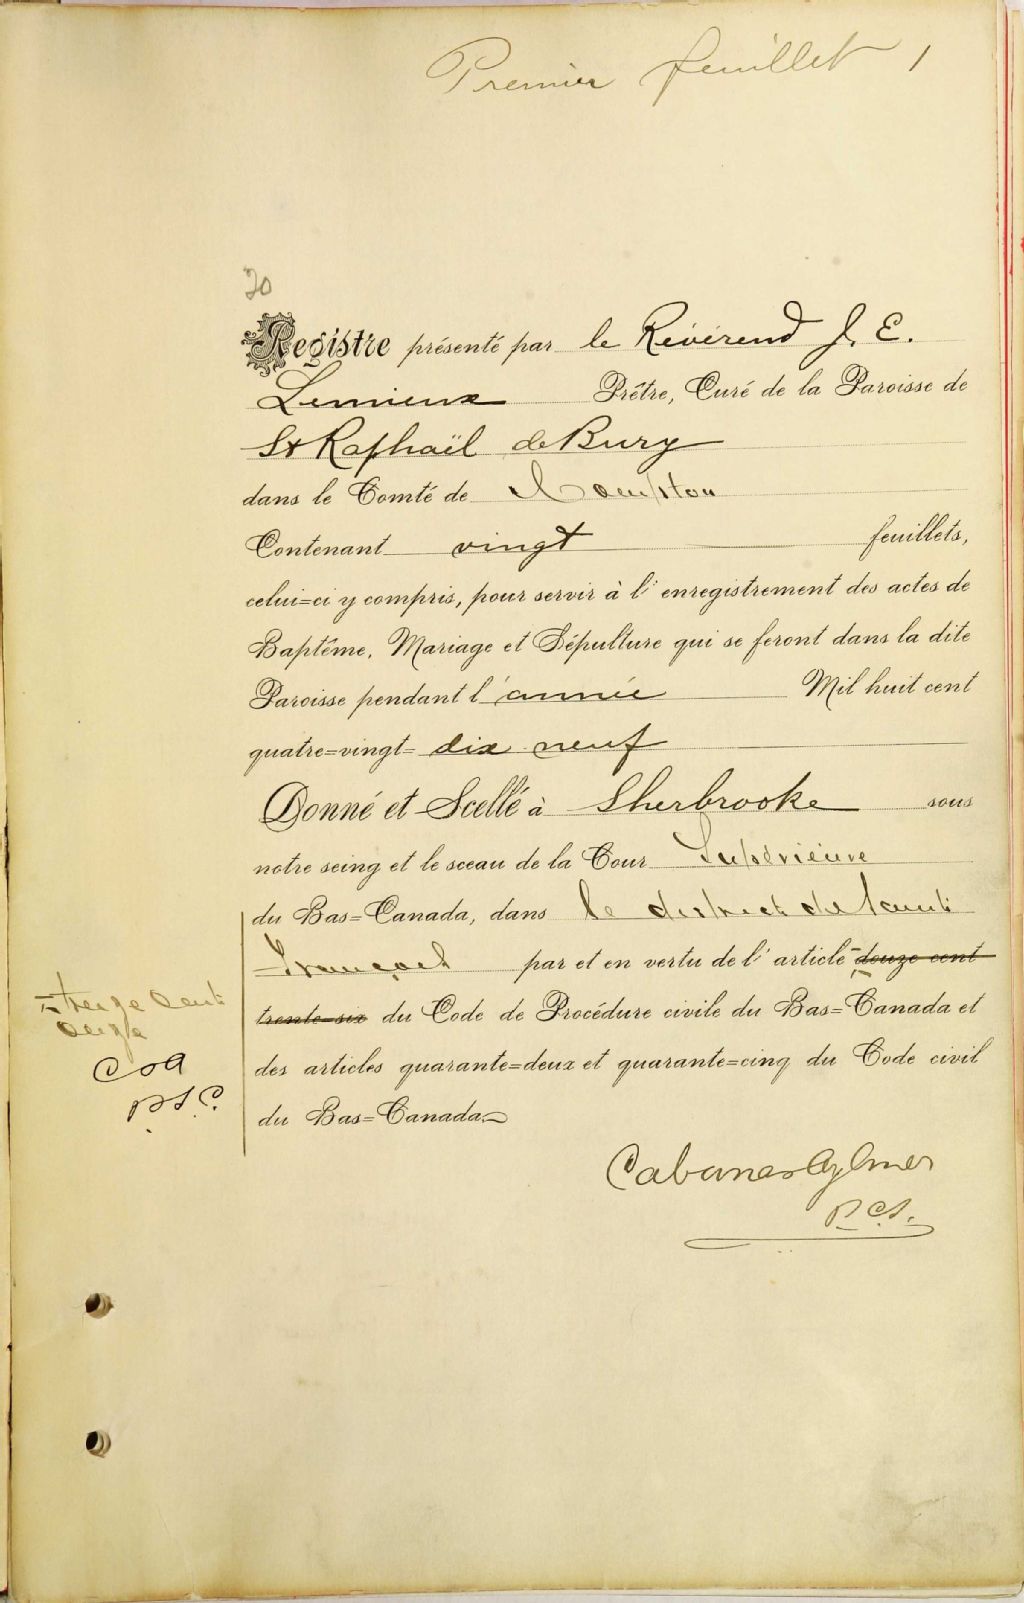 Premier feuillet 1
20
Registre présenté par le Révérend J. E.
Lemieux Prêtre, Curé de la Paroisse de
St Raphaël de Bury
dans le Comté de Compton
Contenant vingt feuillets,
celui=ci y compris, pour servir à l'enregistrement des actes de
Baptême, Mariage et Sépulture qui se feront dans la dite
Paroisse pendant l'année Mil huit cent
quatre=vingt= dix neuf
Donné et Scellé à Sherbrooke sous
notre seing et le sceau de la Cour Supérieure
du Bas=Canada, dans le district de Saint
François par et en vertu de l'article douze cent
trente-six du Code de Procédure civile du Bas=Canada et
des articles quarante=deux et quarante=cinq du Code civil
du Bas=Canada
treize cent
onze
C & A
P.S.C.
Cabana & Aylmer
P.C.S.